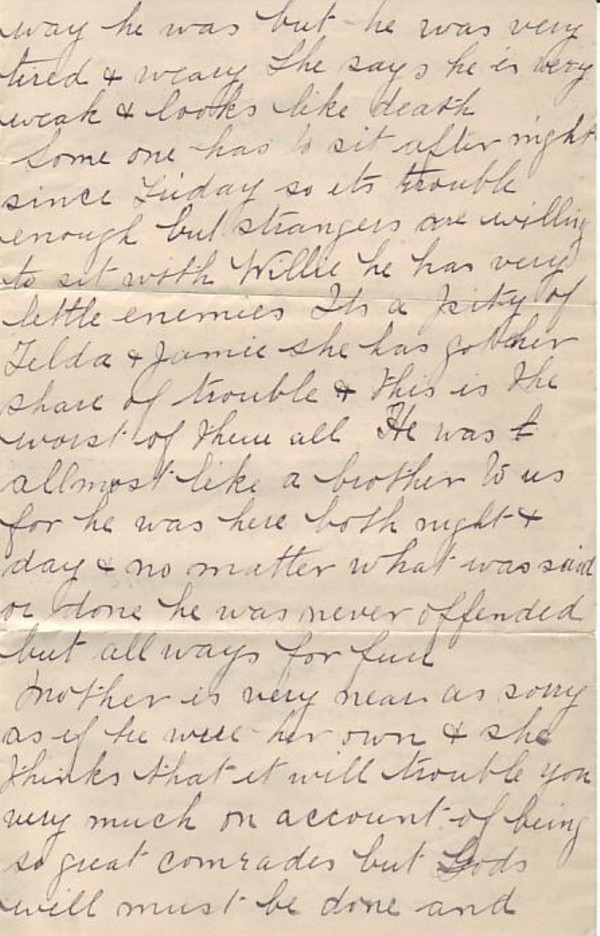 way he was but he was very
tired & weary She says he is very
weak & looks like death
Some one has to sit after night
since Friday so its trouble
enough but strangers are willing
to sit with Willie he has very
little enemies Its a pity of
Telda & Jamie she has got her
share of trouble & this is the
worst of them all He was t
allmost like a brother to us
for he was here both night &
day & no matter what was said
or done he was never offended
but all ways for fun
Mother is very near as sorry
as if he were her own & she
thinks that it will trouble you
very much on account of being
so great comrades but Gods
will must be done and